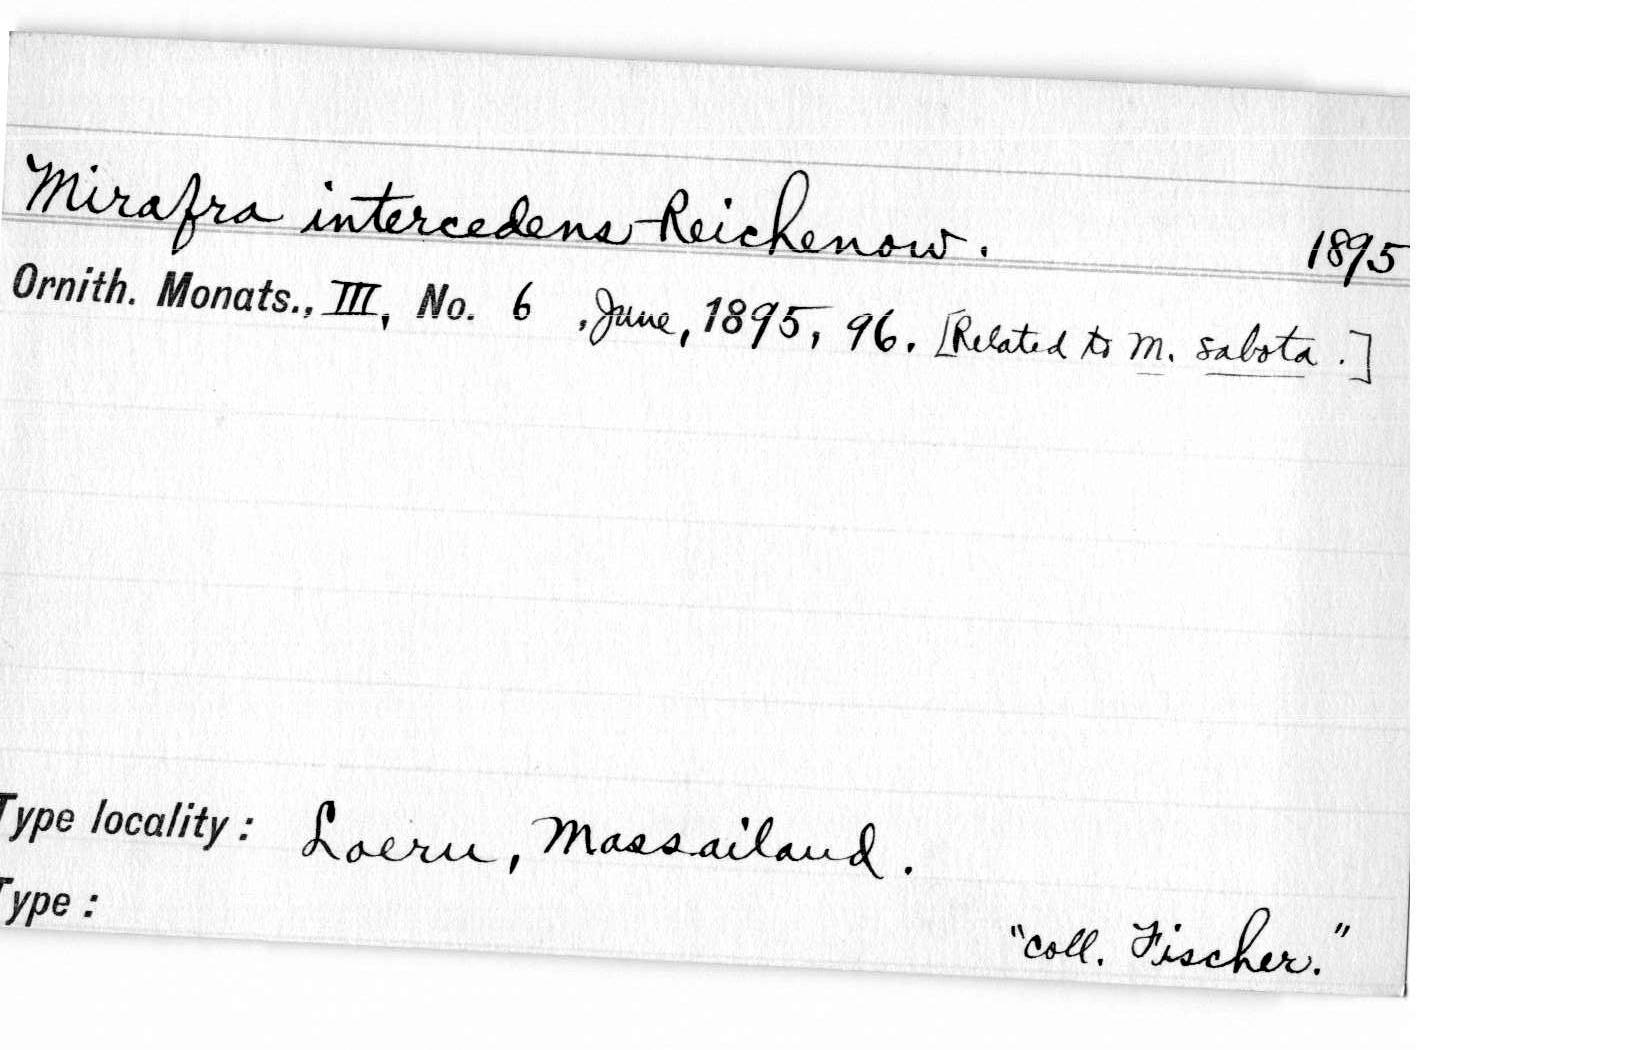 Mirafra intercedens Reichenow. 1895
Ornith. Monats., III, No. 6 , June, 1895, 96. [Related to M. sabota .]
Type locality: Loeru, Massailand.
Type:
"coll. Fischer."